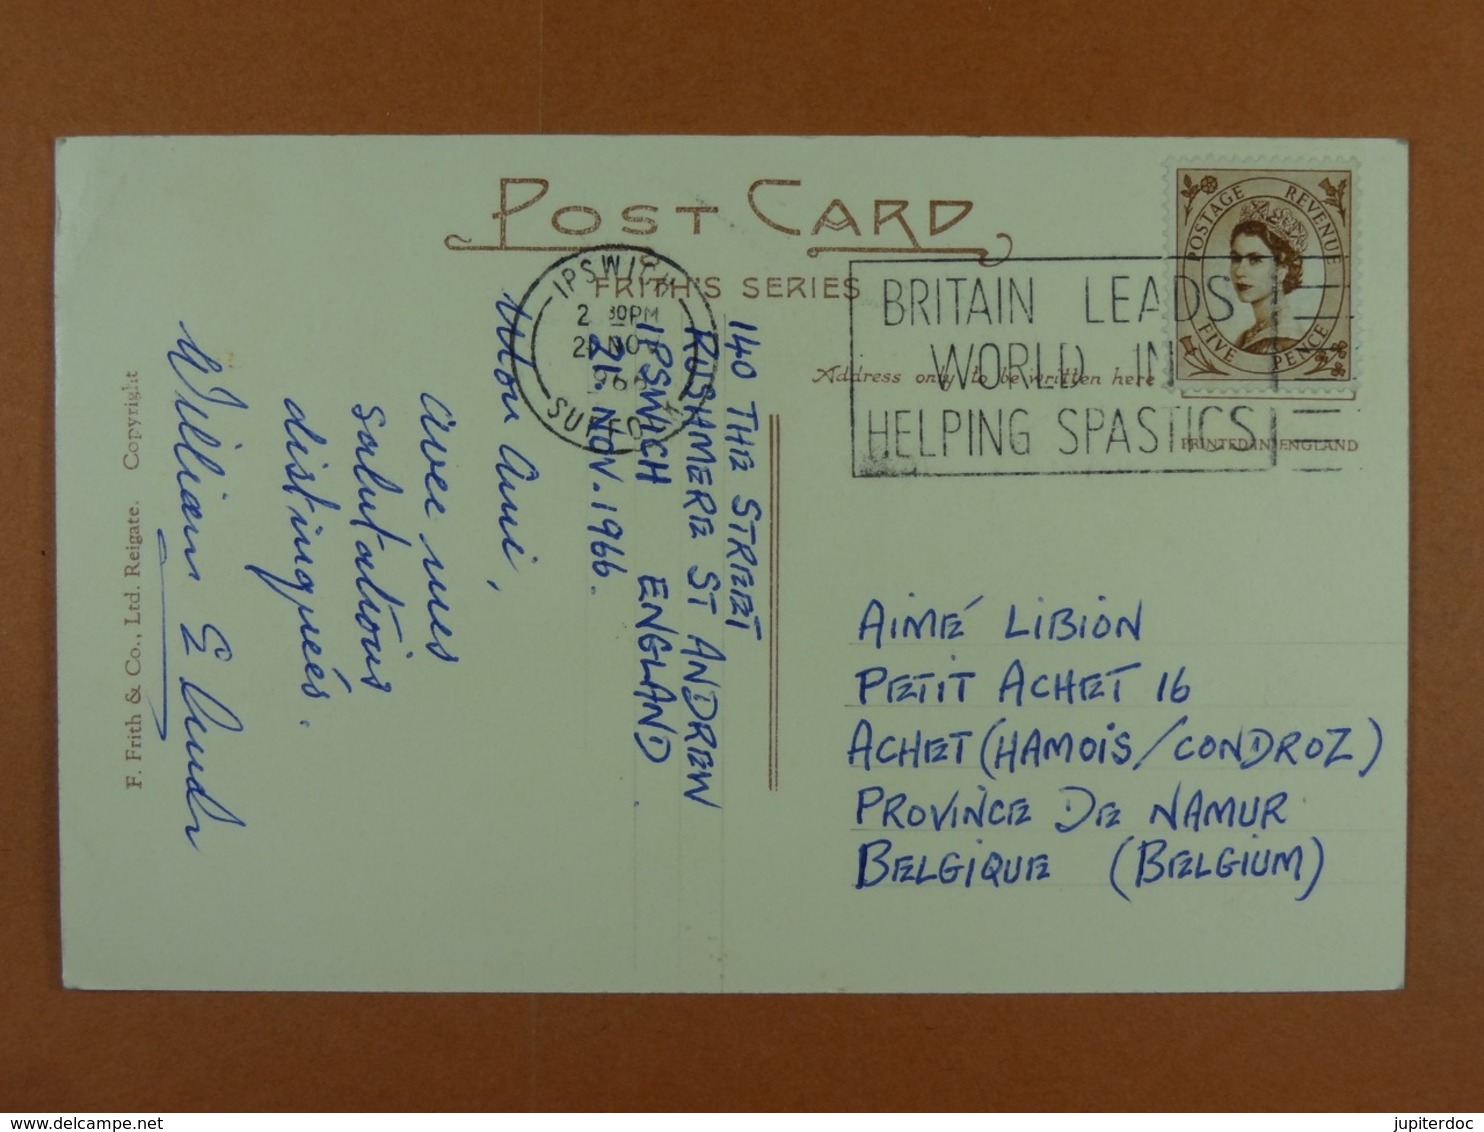 POST CARD
FRITH'S SERIES
IPSWICH
30PM
NOV
1966
SUFFOLK
BRITAIN LEADS
WORLD IN
HELPING SPASTICS
POSTAGE REVENUE
FIVE PENCE
Address only to be written here
PRINTED IN ENGLAND
140 THE STREET
RUSHMERE ST ANDREW
IPSWICH ENGLAND
21. NOV. 1966.
Mon Ami,
avec mes
salutations
distinguées.
William E
F. Frith & Co., Ltd. Reigate. Copyright
AIMÉ LIBION
PETIT ACHET 16
ACHET (HAMOIS/CONDROZ)
PROVINCE DE NAMUR
BELGIQUE (BELGIUM)
delcampe.net
jupiterdoc